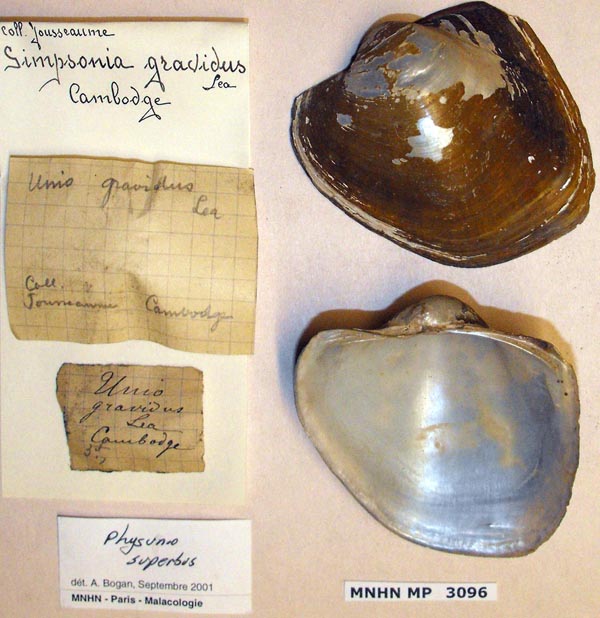 Coll. Jousseaume
Simpsonia gravidus
Lea
Cambodge
Unio gravidus
Lea
Coll.
Jousseaume Cambodge
Unio
gravidus
Lea
Cambodge
Physunio
superbus
dét. A. Bogan, Septembre 2001
MNHN - Paris - Malacologie
MNHN MP 3096